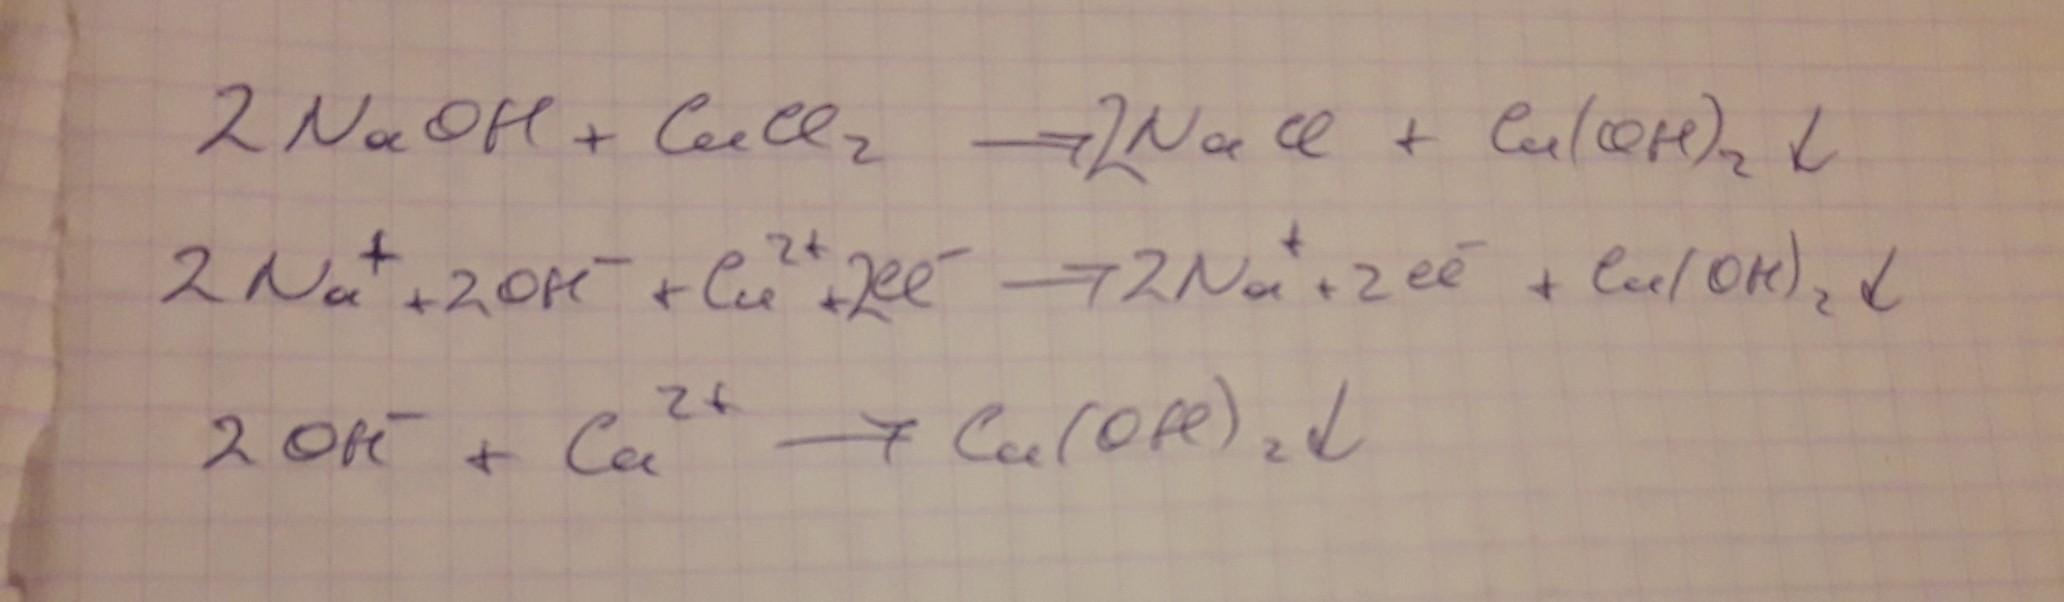 2NaOH + CuCl₂ → 2NaCl + Cu(OH)₂ ↓
2Na⁺ + 2OH⁻ + Cu²⁺ + 2Cl⁻ → 2Na⁺ + 2Cl⁻ + Cu(OH)₂ ↓
2OH⁻ + Cu²⁺ → Cu(OH)₂ ↓